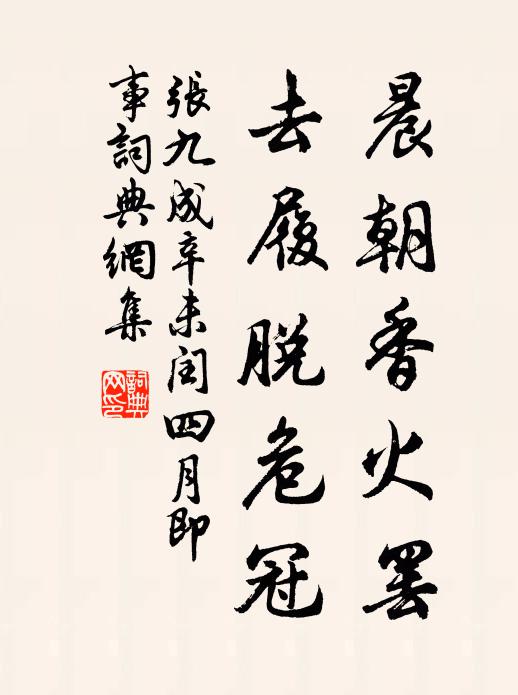 晨朝香火罢
去履脱危冠
張九成辛未闰四月即
事詞典網集
詞典
网印